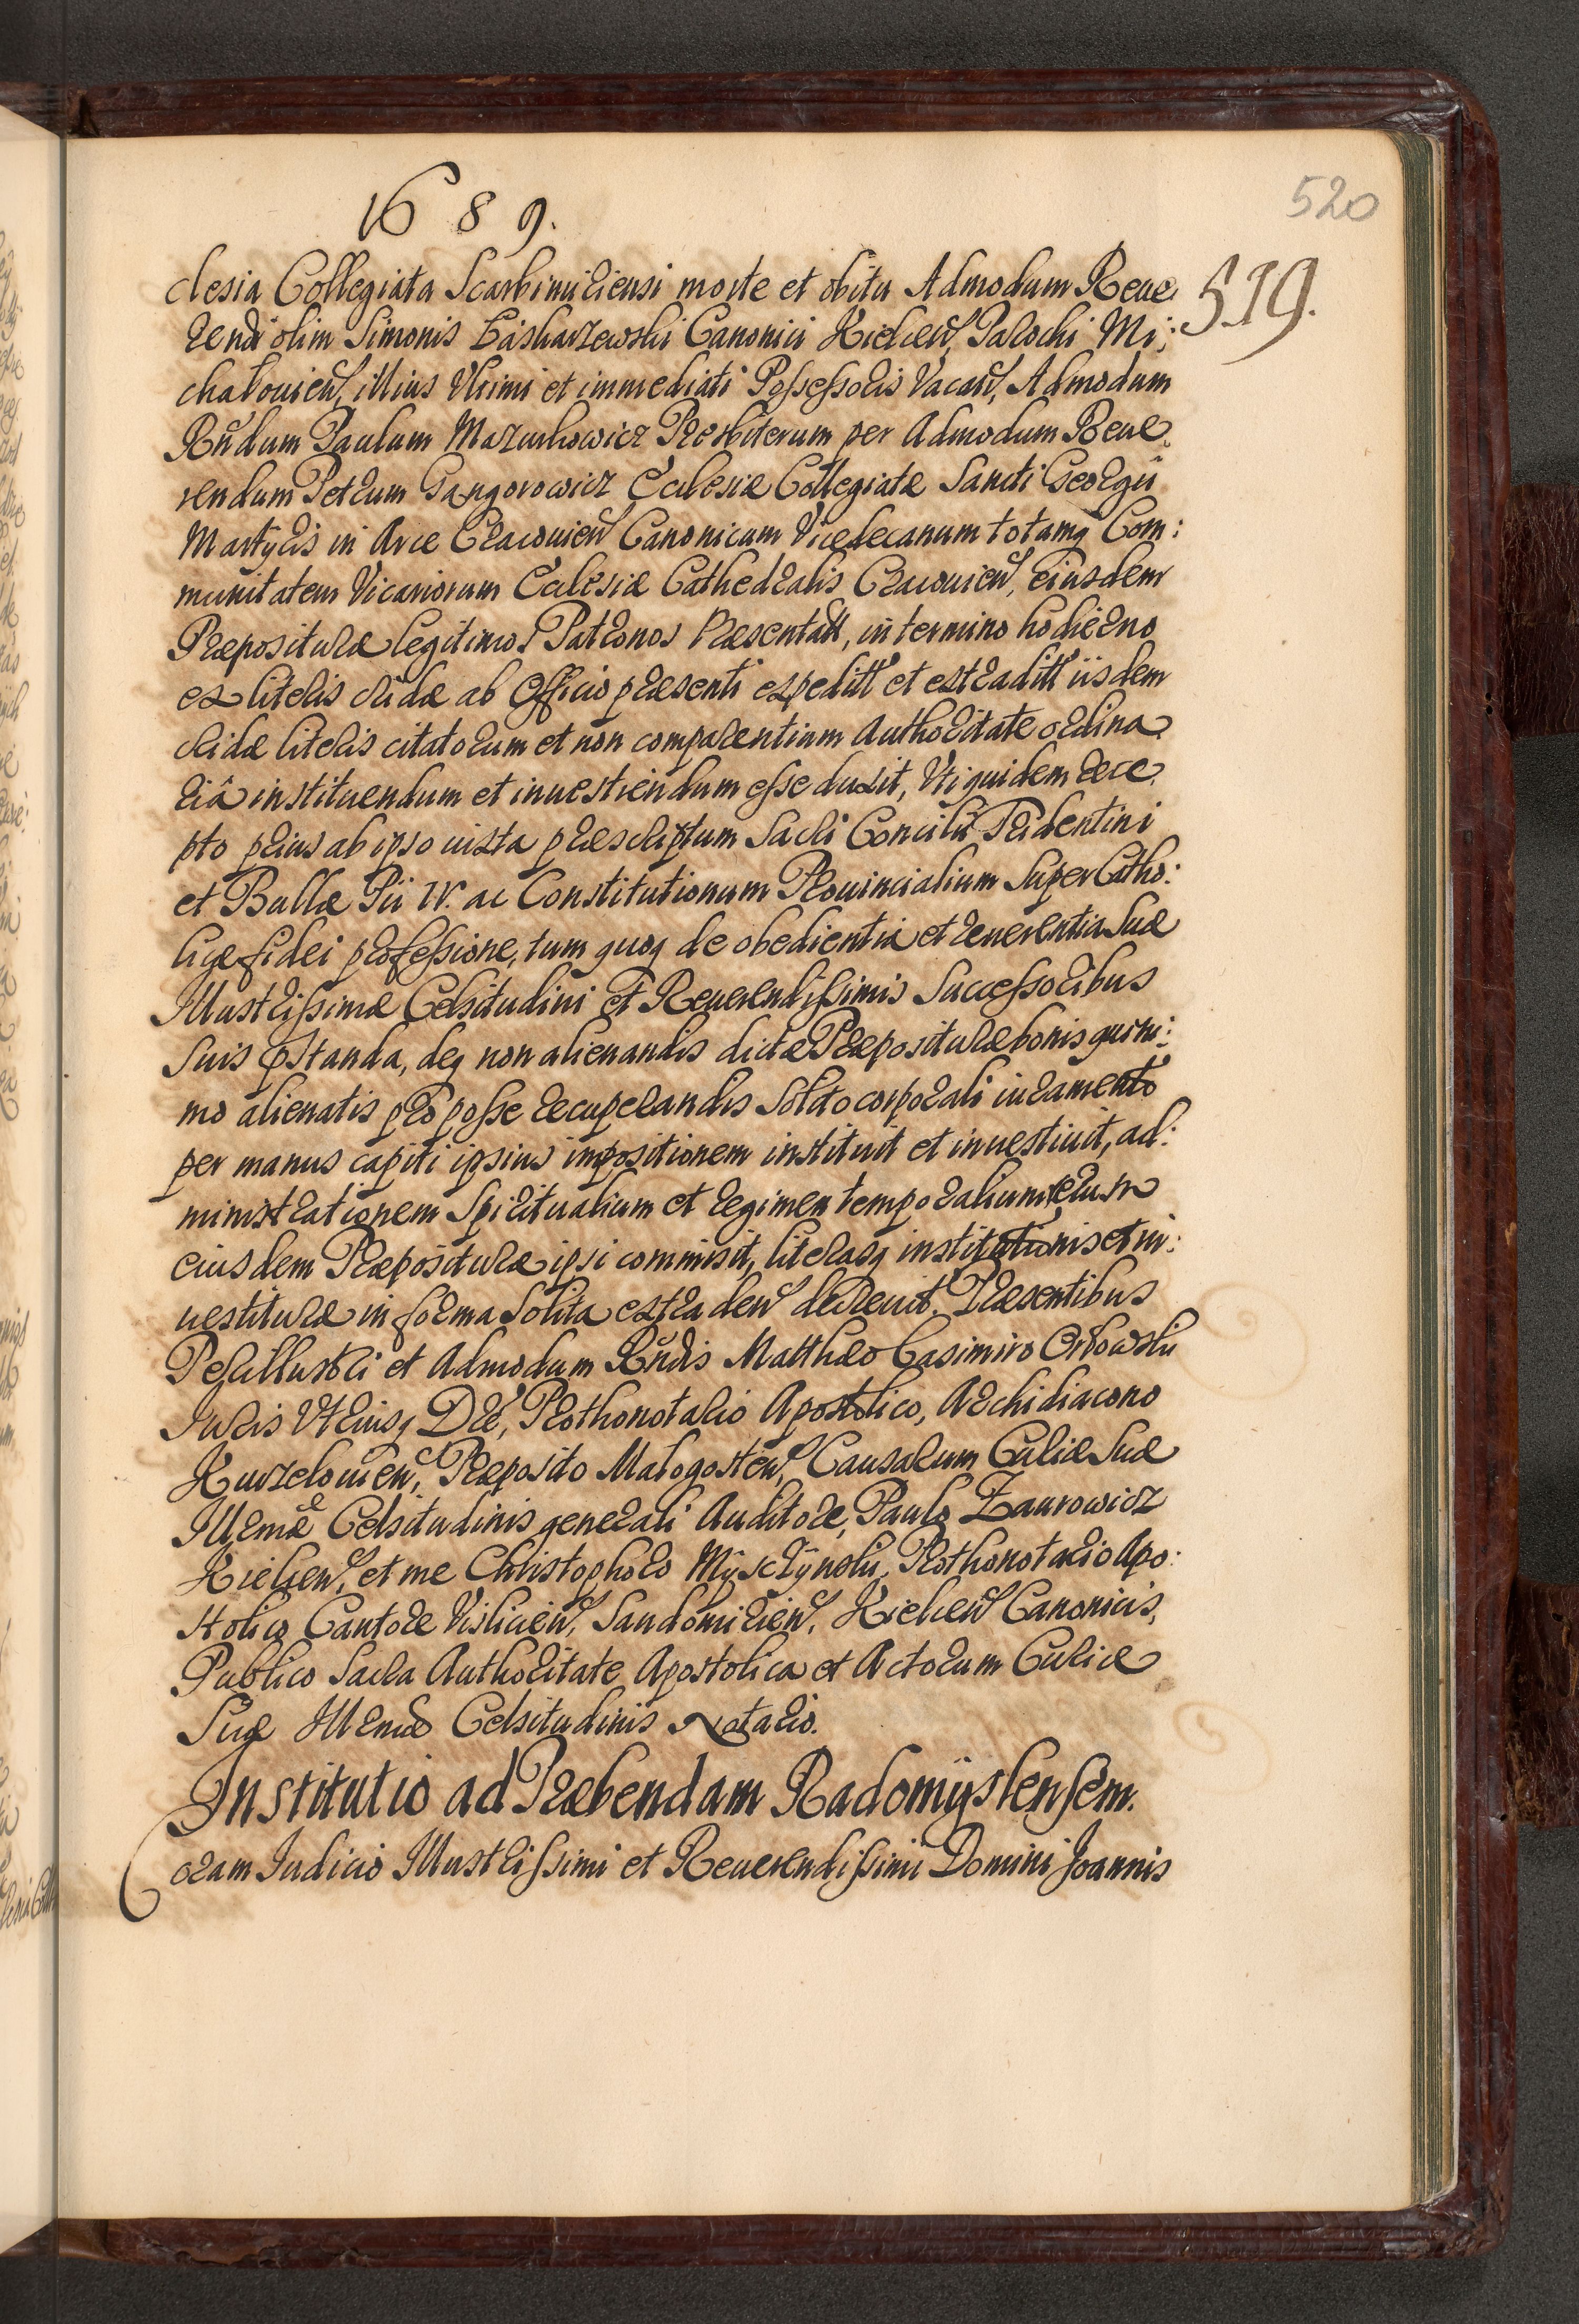 520
1689.
519.
clesia Collegiata Scarbimiriensi morte et obitu Admodum Reue:
rendi olim Simonis Baskarzewski Canonici Kielcen, Parochi Mi:
chałouien, illius Vltimi et immediati Possessoris Vacan, Admodum
Rndum Paulum Mazurkowicz Presbiterum per Admodum Reue:
rendum Petrum Gangorowicz Ecclesiæ Collegiatæ Sancti Georgii
Martyris in Arce Cracouien Canonicum Vicedecanum totamq Com:
munitatem Vicariorum Ecclesiæ Cathedralis Cracouien, eiusdem
Præposituræ legitimos Patronos Præsentatt, in termino hodierno
ex literis cridæ ab Officio præsenti expeditt et extraditt iisdem
cridæ literis citatorum et non comparentium Authoritate ordina:
riâ instituendum et inuestiendum esse duxit, Vti quidem rece:
pto prius ab ipso iuxta præscriptum Sacri Concilii Tridentini
et Bullæ Pii IV. ac Constitutionum Prouincialium Super Catho:
licæ fidei professione, tum quoq de obedientia et reuerentia Suæ
Illustrissimæ Celsitudini et Reuerendissimis Successoribus
Suis pstanda, deq non alienandis dictæ Præposituræ bonis quini:
mo alienatis pro posse recuperandis Solito corporali iuramento
per manus capiti ipsius impositionem instituit et inuestiuit, ad:
ministrationem Spiritualium et regimen temporalium rerum
eiusdem Præposituræ ipsi commisit, literasq institutionis et in:
uestituræ in forma Solita extraden decreuit. Præsentibus
Perillustri et Admodum Rndis Matthæo Casimiro Orłowski
Iuris Vtriusq Dre, Prothonotario Apostolico, Archidiacono
Kurzelouien, Præposito Małogosten, Causarum Curiæ Suæ
Illrmæ Celsitudinis generali Auditore, Paulo Zaurowicz
Kielcen, et me Christophoro Mysczynski, Prothonotario Apo:
stolico Cantore Vislicien, Sandomirien, Kielcen Canonicis,
Publico Sacra Authoritate Apostolica et Actorum Curiæ
Suæ Illrmæ Celsitudinis Notario.
Institutio ad Præbendam Radomÿslensem.
Coram Iudicio Illustrissimi et Reuerendissimi Domini Joannis